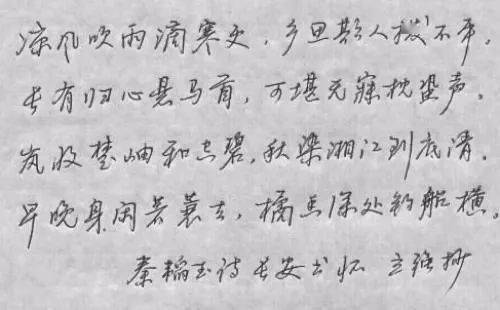 凉风吹雨滴寒更，乡思欺人拨不平。
长有归心悬马首，可堪无寐枕蛩声。
岚收楚岫和空碧，秋染湘江到底清。
早晚身闲著蓑去，橘香深处钓船横。
秦韬玉诗长安书怀 抄